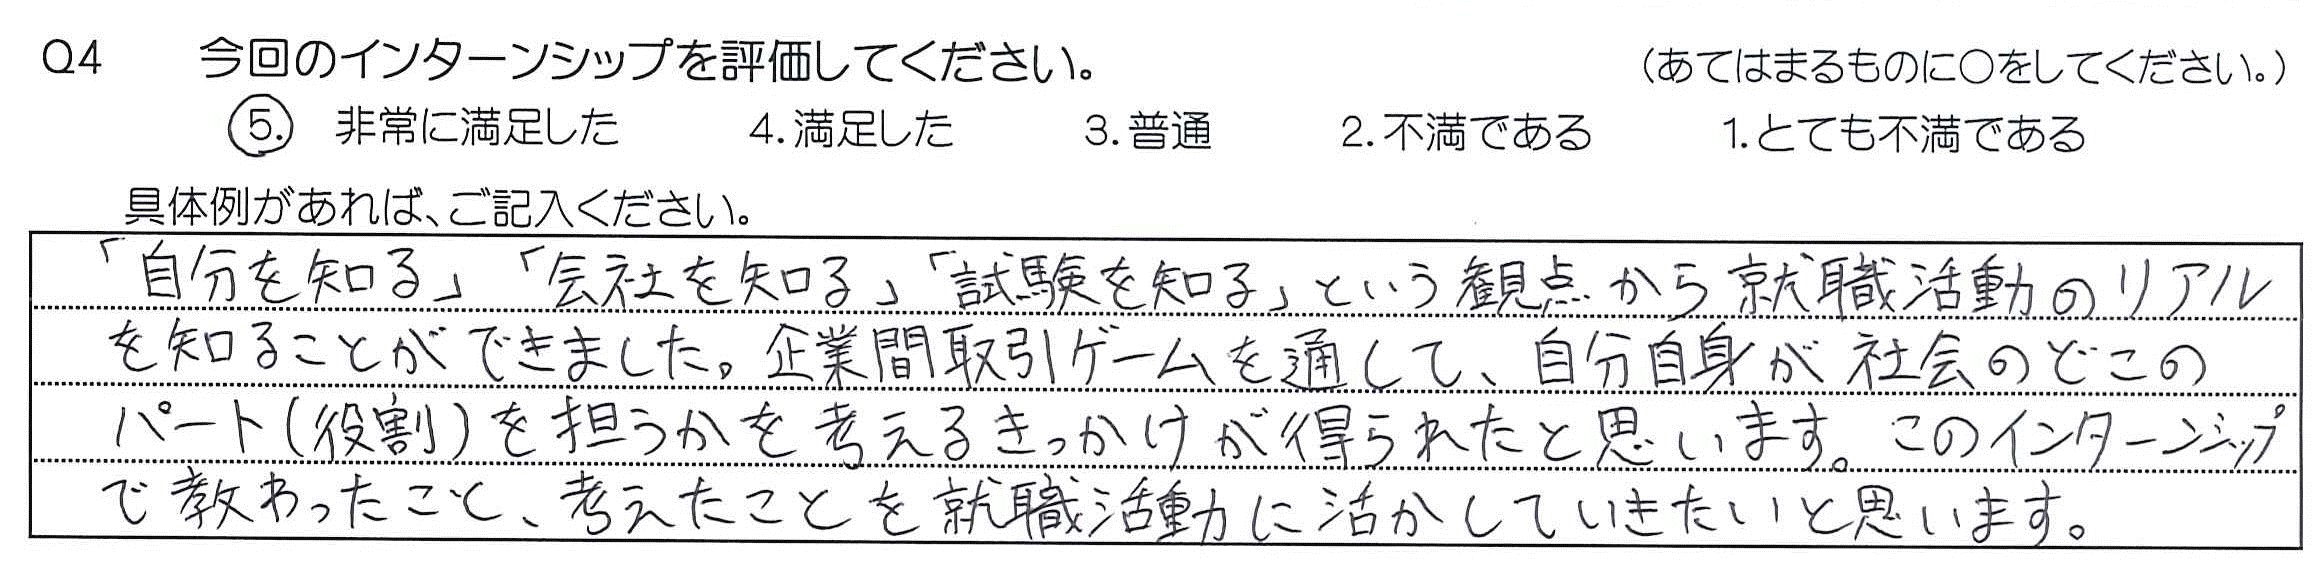 Q4 今回のインターンシップを評価してください。 (あてはまるものに○をしてください。)
5. 非常に満足した 4. 満足した 3. 普通 2. 不満である 1. とても不満である
具体例があれば、ご記入ください。
「自分を知る」「会社を知る」「試験を知る」という観点から就職活動のリアル
を知ることができました。企業間取引ゲームを通して、自分自身が社会のどこの
パート(役割)を担うかを考えるきっかけが得られたと思います。このインターンシップ
で教わったこと、考えたことを就職活動に活かしていきたいと思います。